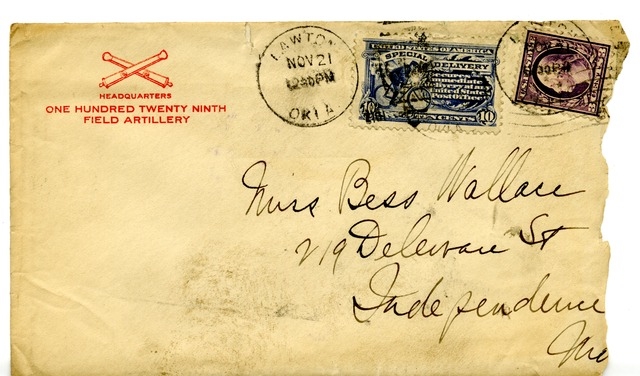 HEADQUARTERS
ONE HUNDRED TWENTY NINTH
FIELD ARTILLERY
LAWTON
NOV 21
1230PM
OKLA
UNITED STATES OF AMERICA
SPECIAL DELIVERY
Secures
immediate
delivery at any
United States
Post Office
10 TEN CENTS 10
Miss Bess Wallace
219 Deleware St
Independence
Mo